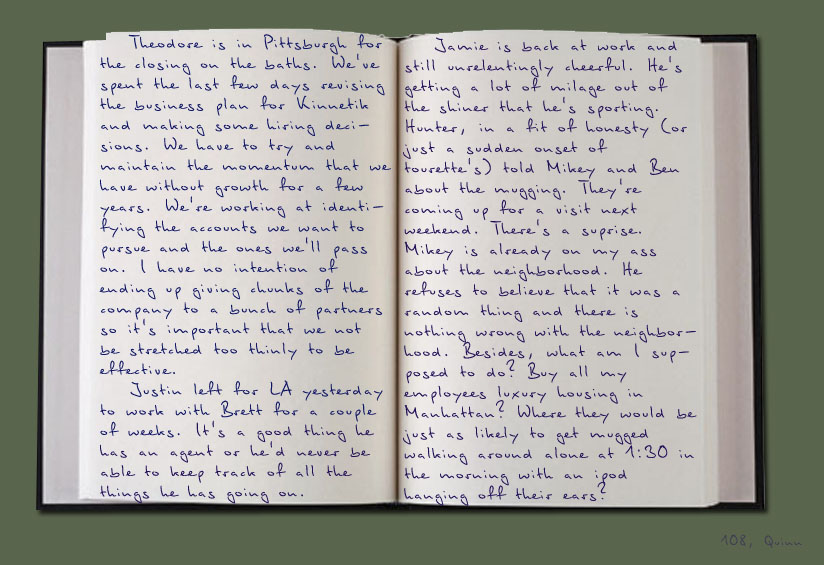 Theodore is in Pittsburgh for
the closing on the baths. We've
spent the last few days revising
the business plan for Kinnetik
and making some hiring deci-
sions. We have to try and
maintain the momentum that we
have without growth for a few
years. We're working at identi-
fying the accounts we want to
pursue and the ones we'll pass
on. I have no intention of
ending up giving chunks of the
company to a bunch of partners
so it's important that we not
be stretched too thinly to be
effective.
Justin left for LA yesterday
to work with Brett for a couple
of weeks. It's a good thing he
has an agent or he'd never be
able to keep track of all the
things he has going on.
Jamie is back at work and
still unrelentingly cheerful. He's
getting a lot of milage out of
the shiner that he's sporting.
Hunter, in a fit of honesty (or
just a sudden onset of
tourette's) told Mikey and Ben
about the mugging. They're
coming up for a visit next
weekend. There's a suprise.
Mikey is already on my ass
about the neighborhood. He
refuses to believe that it was a
random thing and there is
nothing wrong with the neighbor-
hood. Besides, what am I sup-
posed to do? Buy all my
employees luxury housing in
Manhattan? Where they would be
just as likely to get mugged
walking around alone at 1:30 in
the morning with an ipod
hanging off their ears?
108, Quinn